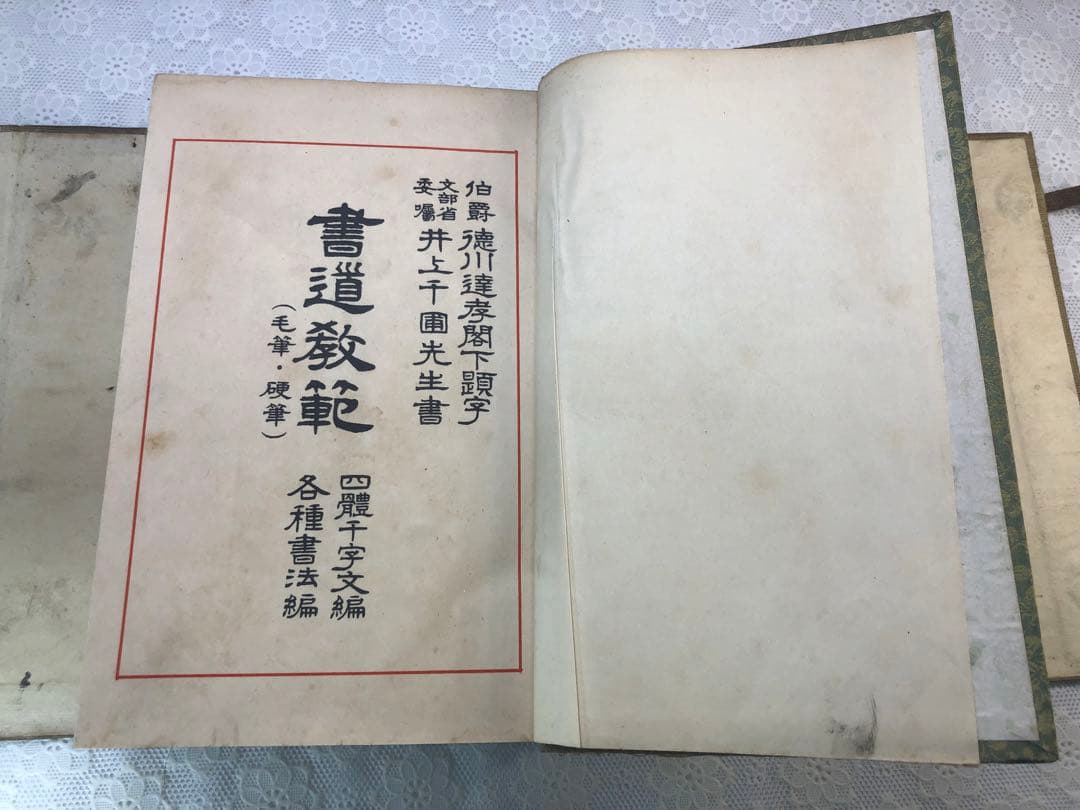 伯爵德川達孝閣下題字
文部省委嘱井上千圃先生書
書道教範
(毛筆・硬筆)
四體千字文編
各種書法編